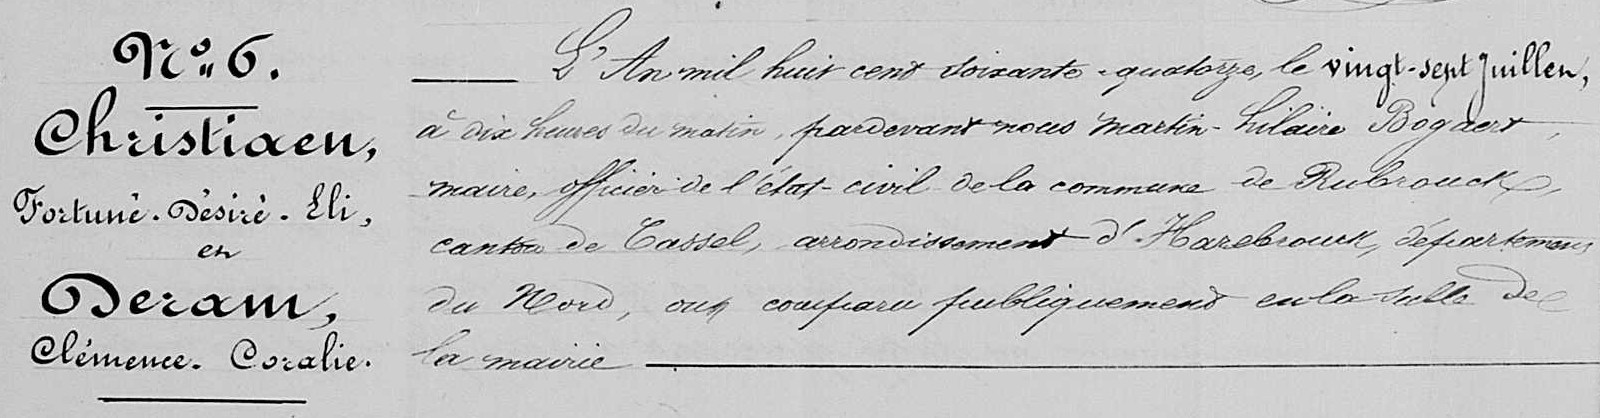 N° 6.
Christiaen,
Fortuné-Désiré-Eli,
et
Deram,
Clémence-Coralie.
L'An mil huit cent soixante-quatorze, le vingt-sept Juillet,
à dix heures du matin, pardevant nous Martin-hilaire Bogaert,
maire, officier de l'état-civil de la commune de Rubrouck,
canton de Cassel, arrondissement d'Hazebrouck, département
du Nord, ont comparu publiquement en la salle de
la mairie